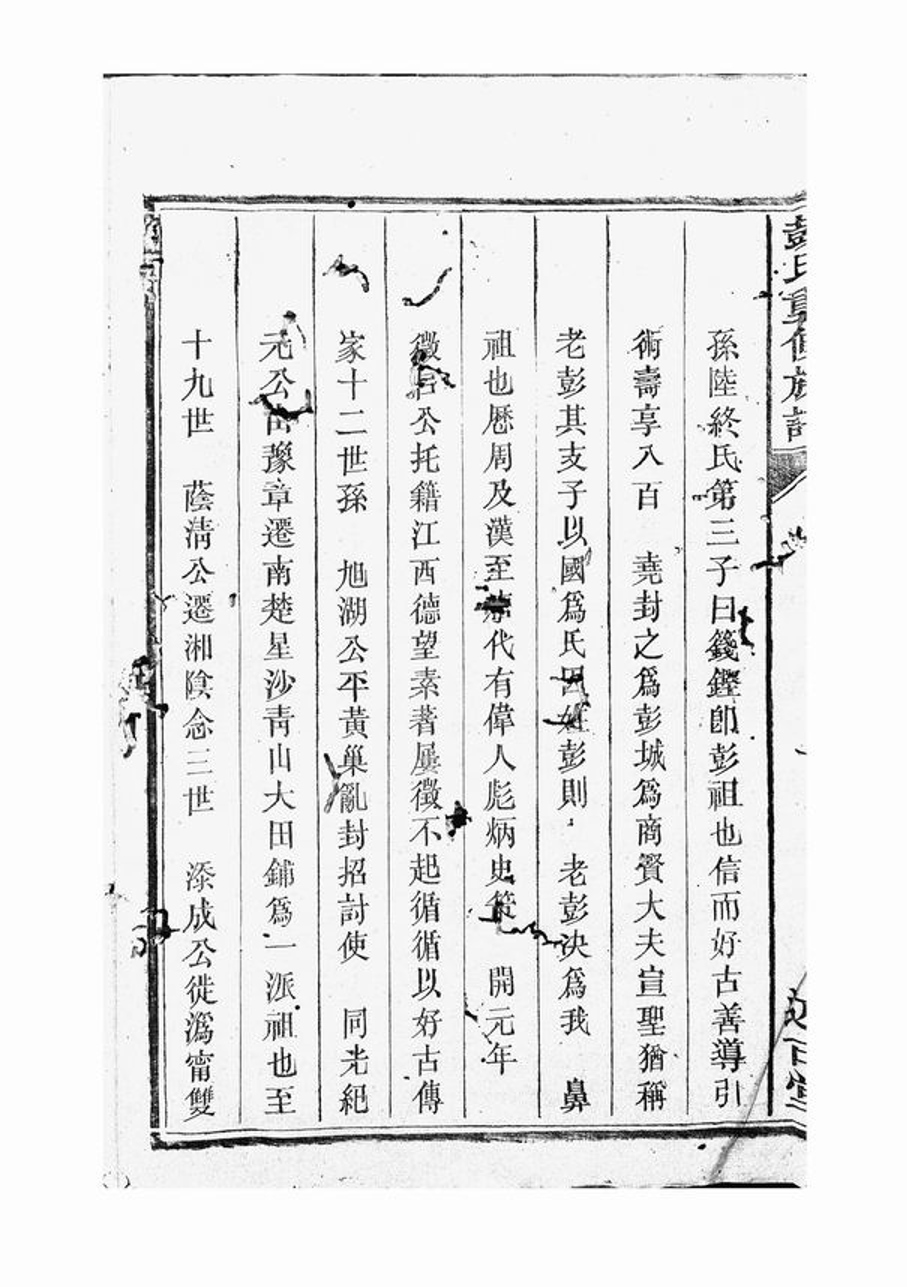 彭氏重修族譜
孫陸終氏第三子曰籛鏗卽彭祖也信而好古善導引
術壽享八百　堯封之爲彭城爲商賢大夫宣聖猶稱
老彭其支子以國爲氏因姓彭則　老彭決爲我　鼻
祖也歷周及漢至代有偉人彪炳史策　開元年
徵公托籍江西德望素著屢徵不起循循以好古傳
家十二世孫　旭湖公平黃巢亂封招討使　同光紀
元公由豫章遷南楚星沙靑山大田鋪爲一派祖也至
十九世　蔭淸公遷湘陰念三世　添成公徙潙甯雙